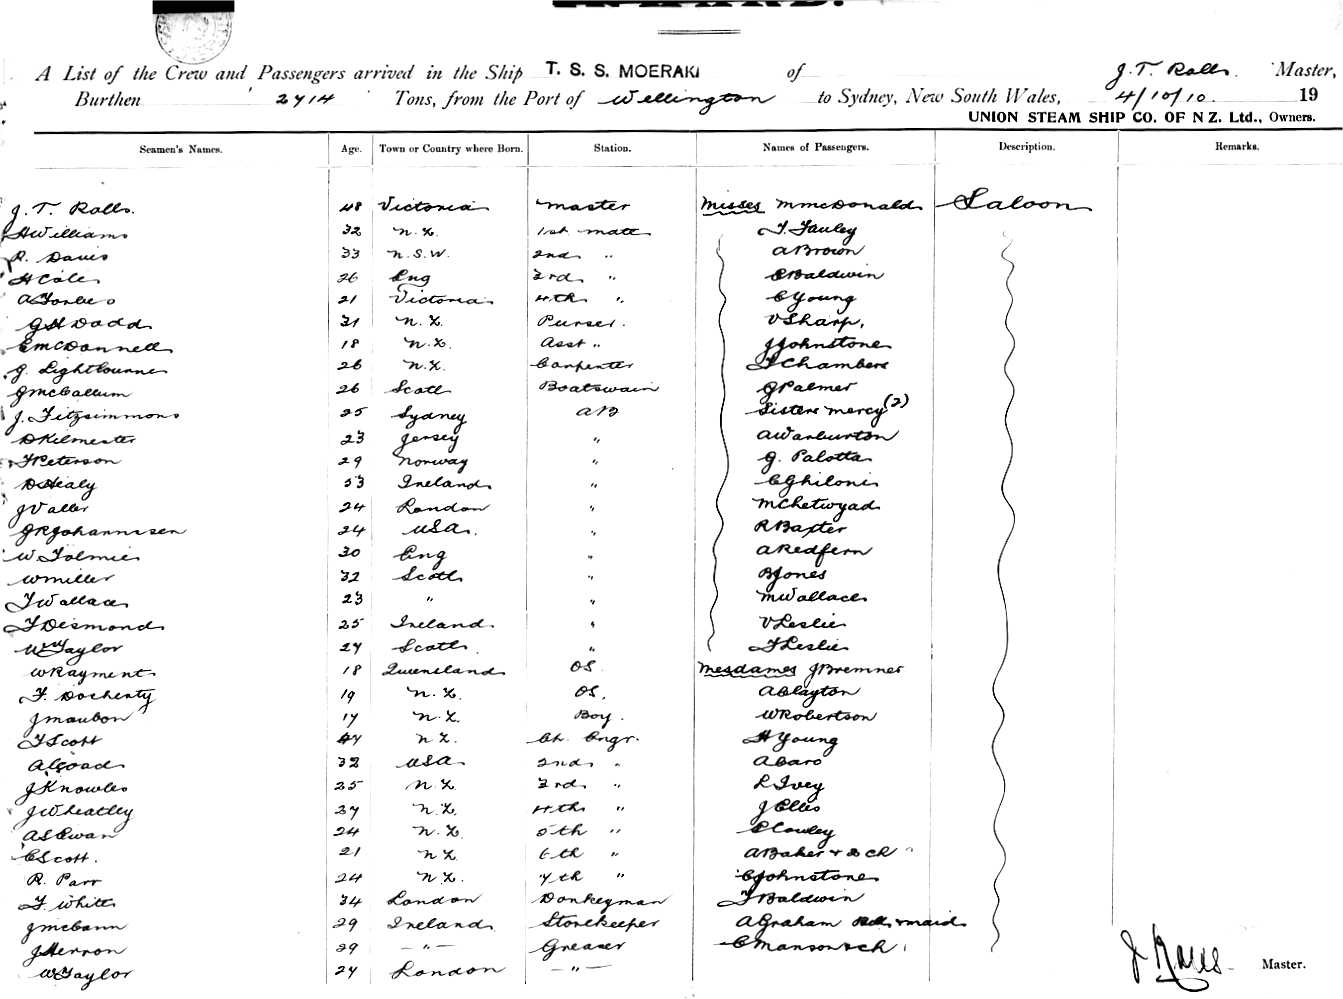 A List of the Crew and Passengers arrived in the Ship T. S. S. MOERAKI of J. T. Rolls. Master,
Burthen 2714 Tons, from the Port of Wellington to Sydney, New South Wales, 4/10/10. 19
UNION STEAM SHIP CO. OF N Z. Ltd., Owners.
Seamen's Names. Age. Town or Country where Born. Station. Names of Passengers. Description. Remarks.
J. T. Rolls. 48 Victoria Master Misses M McDonald Saloon
H Williams 32 N. Z. 1st Mate
R. Davis 33 N. S. W. 2nd " A Brown
H Cole 26 Eng 3rd " E Baldwin
A Forbes 21 Victoria 4th " C Young
G H Dodd 31 N. Z. Purser. V Sharp.
E McDonnell 18 N. Z. Asst " J Johnstone
J. Lightbourne 26 N. Z. Carpenter F Chambers
J McCallum 26 Scotl Boatswain J Palmer
J. Fitzsimmons 25 Sydney A B Sisters Mercy (2)
D Kilmester 23 Jersey " A Warburton
F Peterson 29 Norway " G. Palotta
D Healy 53 Ireland " C Ghiloni
J Valler 24 London " M Chetwyad
J R Johannesen 24 USA. " R Baxter
W Tolmie 30 Eng " A Redfern
W Miller 32 Scotl " B Jones
J Wallace 23 " " M Wallace
F Desmond 25 Ireland " V Leslie
Wm Taylor 27 Scotl. " F Leslie
W Rayment 18 Queensland OS Mesdames J Bremner
F. Docherty 19 N. Z. OS. A Clayton
J Maubon 17 N. Z. Boy. W Robertson
F Scott 47 N Z. Ch. Engr. H Young
A Goad 32 USA 2nd " A Caro
J Knowles 25 N. Z. 3rd " L Ivey
J Wheatley 27 N. Z. 4th " J Ellis
A S Ewan 24 N. Z. 5th " E Cowley
C Scott. 21 N Z. 6th " A Baker + & ch
R. Parr 24 N Z. 7th " C Johnstone
F. White 34 London Donkeyman F Baldwin
J McCann 29 Ireland Storekeeper A Graham + maid
J Herron 29 — " — Greaser C Manson & ch
W Taylor 27 London — " —
J Rolls Master.